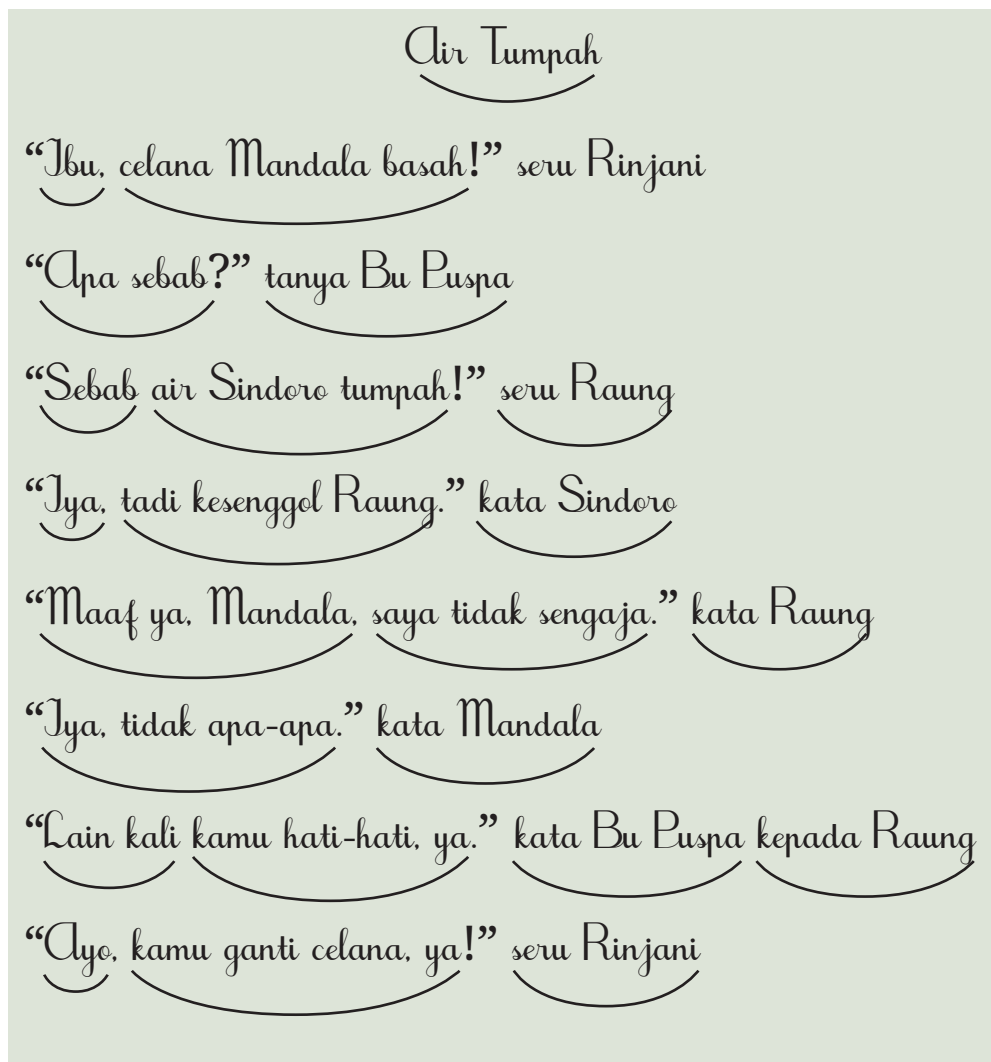 Air Tumpah
“Ibu, celana Mandala basah!” seru Rinjani
“Apa sebab?” tanya Bu Puspa
“Sebab air Sindoro tumpah!” seru Raung
“Iya, tadi kesenggol Raung.” kata Sindoro
“Maaf ya, Mandala, saya tidak sengaja.” kata Raung
“Iya, tidak apa-apa.” kata Mandala
“Lain kali kamu hati-hati, ya.” kata Bu Puspa kepada Raung
“Ayo, kamu ganti celana, ya!” seru Rinjani